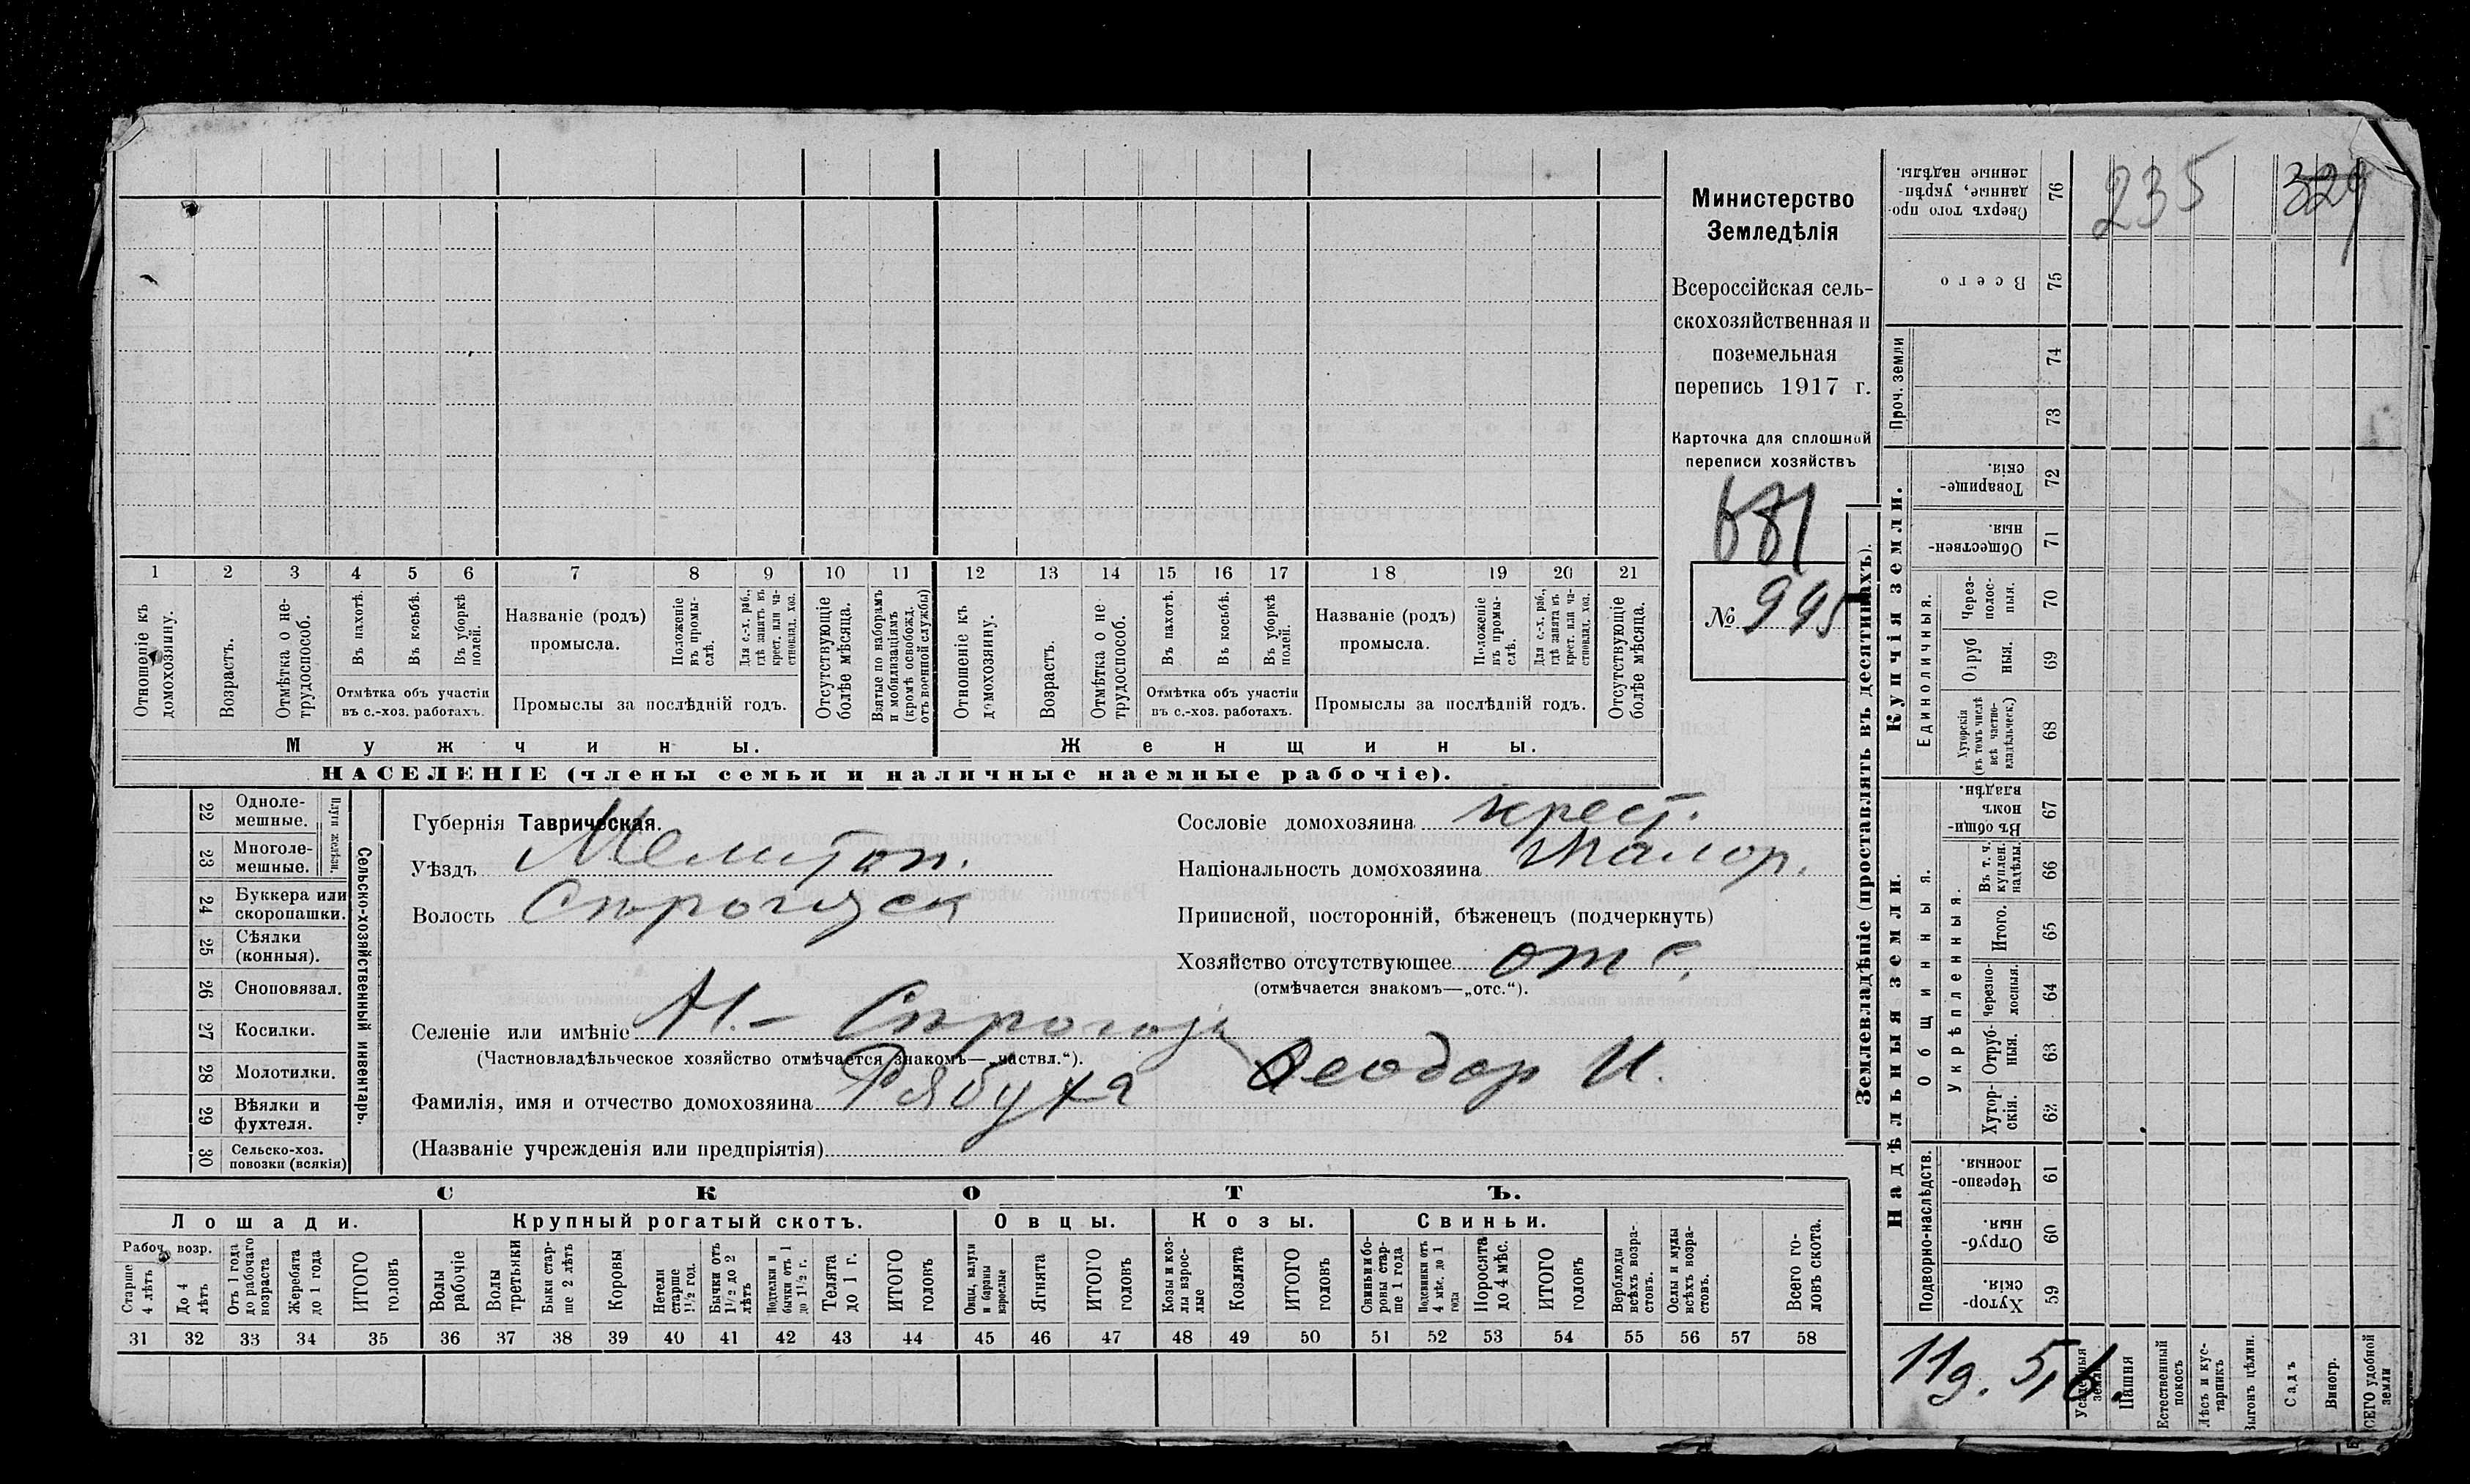 1 2 3 4 5 6 7 8 9 10 11 12 13 14 15 16 17 18 19 20 21
Отношеніе къ домохозяину.
Возрастъ.
Отмѣтка о нетрудоспособ.
Въ пахотѣ.
Въ косьбѣ.
Въ уборкѣ полей.
Отмѣтка объ участіи
въ с.-хоз. работахъ.
Названіе (родъ)
промысла.
Положеніе въ промыслѣ.
Для с.-х. раб., гдѣ занятъ въ крест. или частновлад. хоз.
Промыслы за послѣдній годъ.
Отсутствующіе болѣе мѣсяца.
Взятые по наборамъ и мобилизаціямъ (кромѣ освобожд. отъ военной службы)
Отношеніе къ домохозяину.
Возрастъ.
Отмѣтка о не трудоспособ.
Въ пахотѣ.
Въ косьбѣ.
Въ уборкѣ полей.
Отмѣтка объ участіи
въ с.-хоз. работахъ.
Названіе (родъ)
промысла.
Положеніе въ промыслѣ.
Для с.-х. раб., гдѣ занята въ крест. или частновлад. хоз.
Промыслы за послѣдній годъ.
Отсутствующіе болѣе мѣсяца.
Мужчины.
Женщины.
НАСЕЛЕНІЕ (члены семьи и наличные наемные рабочіе).
Министерство
Земледѣлія
Всероссійская сель-
скохозяйственная и
поземельная
перепись 1917 г.
Карточка для сплошной
переписи хозяйствъ
№ 945
22 Одноле-
мешные.
23 Многоле-
мешные.
Плуги желѣзн.
24 Буккера или
скоропашки.
25 Сѣялки
(конныя).
26 Сноповязал.
27 Косилки.
28 Молотилки.
29 Вѣялки и
фухтеля.
30 Сельско-хоз.
повозки (всякія)
Сельско-хозяйственный инвентарь.
Губернія Таврическая.
Уѣздъ Мелитоп.
Волость Сѣрогозск
Сословіе домохозяина крест.
Національность домохозяина Малор.
Приписной, посторонній, бѣженецъ (подчеркнуть)
Хозяйство отсутствующее отс.
(отмѣчается знакомъ—„отс.“).
Селеніе или имѣніе Н.- Сѣрогозы
(Частновладѣльческое хозяйство отмѣчается знакомъ—„частвл.“).
Фамилія, имя и отчество домохозяина Рябуха Ѳеодор И.
(Названіе учрежденія или предпріятія)
СКОТЪ.
Лошади.
Крупный рогатый скотъ.
Овцы.
Козы.
Свиньи.
Рабоч. возр.
Старше 4 лѣтъ
До 4 лѣтъ
Отъ 1 года до рабочаго возраста
Жеребята до 1 года
ИТОГО головъ
Волы рабочіе
Волы третьяки
Быки старше 2 лѣтъ
Коровы
Нетели старше 1½ год.
Бычки отъ 1½ до 2 лѣтъ
Подтелки и бычки отъ 1 до 1½ г.
Телята до 1 г.
ИТОГО головъ
Овцы, валухи и бараны взрослые
Ягнята
ИТОГО головъ
Козы и козлы взрослые
Козлята
ИТОГО головъ
Свиньи и боровы старше 1 года
Подсвинки отъ 4 мѣс. до 1 года
Поросята до 4 мѣс.
ИТОГО головъ
Верблюды всѣхъ возрастовъ.
Ослы и мулы всѣхъ возрастовъ.
Всего головъ скота.
31 32 33 34 35 36 37 38 39 40 41 42 43 44 45 46 47 48 49 50 51 52 53 54 55 56 57 58
Землевладѣніе (проставлять въ десятинахъ).
Купчія земли.
Надѣльныя земли.
Сверхъ того проданные, укрѣпленные надѣлы. 76
235
329
Всего 75
Проч. земли
74
73
Товарищескія. 72
Общественныя. 71
Единоличныя.
Черезполосныя. 70
Отрубныя. 69
Хуторскія (въ томъ числѣ всѣ частновладѣльческ.) 68
Общинныя.
Въ общинномъ владѣн. 67
Укрѣпленныя.
Въ т. ч. куплен. надѣлы. 66
Итого. 65
Черезполосныя. 64
Отрубныя. 63
Хуторскія. 62
Подворно-наслѣдств.
Черезполосныя. 61
Отрубныя. 60
Хуторскія. 59
Усадебныя земли
Пашня
Естественный покосъ
Лѣсъ и кустарникъ
Выгонъ цѣлин.
Садъ
Виногр.
ВСЕГО удобной земли